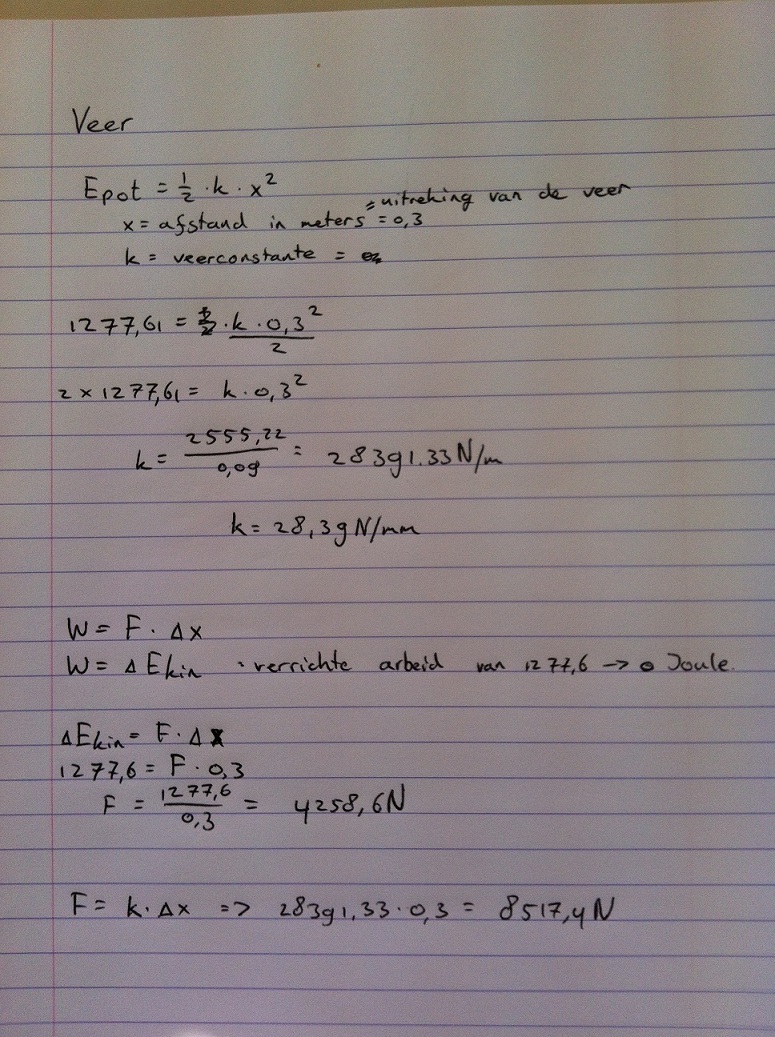 Veer
Epot = 1/2 · k · x²
= uitreking van de veer
x = afstand in meters = 0,3
k = veerconstante =
1277,61 = k · 0,3² / 2
2 × 1277,61 = k · 0,3²
k = 2555,22 / 0,09 = 28391.33 N/m
k = 28,39 N/mm
W = F · Δx
W = Δ Ekin · verrichte arbeid van 1277,6 -> 0 Joule.
ΔEkin = F · Δx
1277,6 = F · 0,3
F = 1277,6 / 0,3 = 4258,6N
F = k · Δx => 28391,33 · 0,3 = 8517,4N